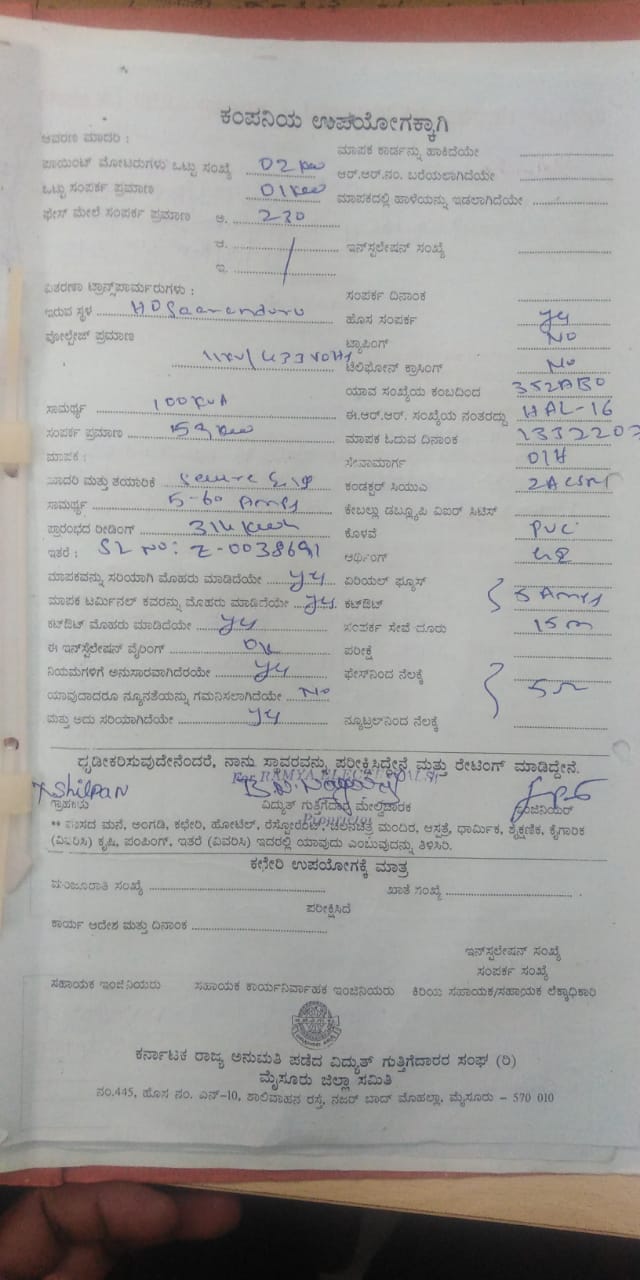 ಕಂಪನಿಯ ಉಪಯೋಗಕ್ಕಾಗಿ
ಆವರಣ ಮಾದರಿ :
ಮಾಪಕ ಕಾರ್ಡನ್ನು ಹಾಕಿದೆಯೇ
ಪಾಯಿಂಟ್ ಮೋಟರುಗಳು ಒಟ್ಟು ಸಂಖ್ಯೆ 02 kw
ಆರ್.ಆರ್.ನಂ. ಬರೆಯಲಾಗಿದೆಯೇ
ಒಟ್ಟು ಸಂಪರ್ಕ ಪ್ರಮಾಣ 01 kw
ಮಾಪಕದಲ್ಲಿ ಹಾಳೆಯನ್ನು ಇಡಲಾಗಿದೆಯೇ
ಫೇಸ್ ಮೇಲೆ ಸಂಪರ್ಕ ಪ್ರಮಾಣ ಅ. 230
ಆ. ಇನ್‌ಸ್ಟಲೇಷನ್ ಸಂಖ್ಯೆ
ಇ.
ವಿತರಣಾ ಟ್ರಾನ್ಸ್‌ಪಾರ್ಮರುಗಳು :
ಸಂಪರ್ಕ ದಿನಾಂಕ
ಇರುವ ಸ್ಥಳ
ಹೊಸ ಸಂಪರ್ಕ yes
ವೋಲ್ಟೇಜ್ ಪ್ರಮಾಣ
ಟ್ಯಾಪಿಂಗ್ No
11kv/433 volts
ಟೆಲಿಫೋನ್ ಕ್ರಾಸಿಂಗ್ No
ಯಾವ ಸಂಖ್ಯೆಯ ಕಂಬದಿಂದ
ಸಾಮರ್ಥ್ಯ 100 KVA
ಈ.ಆರ್.ಆರ್. ಸಂಖ್ಯೆಯ ನಂತರದ್ದು HAL-16
ಸಂಪರ್ಕ ಪ್ರಮಾಣ
ಮಾಪಕ ಓದುವ ದಿನಾಂಕ
ಮಾಪಕ :
ಸೇನಾಮಾರ್ಗ OH
ಮಾದರಿ ಮತ್ತು ತಯಾರಿಕೆ secure
ಕಂಡಕ್ಟರ್ ಸಿಯುಎ
ಸಾಮರ್ಥ್ಯ 5-60 Amps
ಕೇಬಲ್ಲು ಡಬ್ಲ್ಯೂಪಿ ಎಐರ್ ಸಿಟಿಸ್
ಪ್ರಾರಂಭದ ರೀಡಿಂಗ್
ಕೊಳವೆ PVC
ಇತರೆ : SL NO: Z-0038691
ಆರ್ಥಿಂಗ್
ಮಾಪಕವನ್ನು ಸರಿಯಾಗಿ ಮೊಹರು ಮಾಡಿದೆಯೇ yes
ಏರಿಯಲ್ ಫ್ಯೂಸ್
ಮಾಪಕ ಟರ್ಮಿನಲ್ ಕವರನ್ನು ಮೊಹರು ಮಾಡಿದೆಯೇ yes
ಕಟ್‌ಔಟ್ 5 Amps
ಕಟ್‌ಔಟ್ ಮೊಹರು ಮಾಡಿದೆಯೇ yes
ಸಂಪರ್ಕ ಸೇವೆ ದೂರು 15 m
ಈ ಇನ್‌ಸ್ಟಲೇಷನ್ ವೈರಿಂಗ್ OK
ಪರೀಕ್ಷೆ
ನಿಯಮಗಳಿಗೆ ಅನುಸಾರವಾಗಿದೆಯೇ yes
ಫೇಸ್‌ನಿಂದ ನೆಲಕ್ಕೆ
ಯಾವುದಾದರೂ ನ್ಯೂನತೆಯನ್ನು ಗಮನಿಸಲಾಗಿದೆಯೇ No
ಮತ್ತು ಅದು ಸರಿಯಾಗಿದೆಯೇ yes
ನ್ಯೂಟ್ರಲ್‌ನಿಂದ ನೆಲಕ್ಕೆ
ಧೃಡೀಕರಿಸುವುದೇನೆಂದರೆ, ನಾನು ಸ್ಥಾವರವನ್ನು ಪರೀಕ್ಷಿಸಿದ್ದೇನೆ ಮತ್ತು ರೇಟಿಂಗ್ ಮಾಡಿದ್ದೇನೆ.
For RAMYA ELECTRICALS,
Proprietor
ಗ್ರಾಹಕರು ವಿದ್ಯುತ್ ಗುತ್ತಿಗೆದಾರ ಮೇಲ್ವಿಚಾರಕ ಇಂಜಿನಿಯರ್
** ವಾಸದ ಮನೆ, ಅಂಗಡಿ, ಕಛೇರಿ, ಹೋಟೆಲ್, ರೆಸ್ಟೋರೆಂಟ್, ಚಲನಚಿತ್ರ ಮಂದಿರ, ಆಸ್ಪತ್ರೆ, ಧಾರ್ಮಿಕ, ಶೈಕ್ಷಣಿಕ, ಕೈಗಾರಿಕ
(ವಿವರಿಸಿ) ಕೃಷಿ, ಪಂಪಿಂಗ್, ಇತರೆ (ವಿವರಿಸಿ) ಇದರಲ್ಲಿ ಯಾವುದು ಎಂಬುವುದನ್ನು ತಿಳಿಸಿರಿ.
ಕಛೇರಿ ಉಪಯೋಗಕ್ಕೆ ಮಾತ್ರ
ಮಂಜೂರಾತಿ ಸಂಖ್ಯೆ ಖಾತೆ ಸಂಖ್ಯೆ
ಪರೀಕ್ಷಿಸಿದೆ
ಕಾರ್ಯ ಆದೇಶ ಮತ್ತು ದಿನಾಂಕ
ಇನ್‌ಸ್ಟಲೇಷನ್ ಸಂಖ್ಯೆ
ಸಂಪರ್ಕ ಸಂಖ್ಯೆ
ಸಹಾಯಕ ಇಂಜಿನಿಯರು ಸಹಾಯಕ ಕಾರ್ಯನಿರ್ವಾಹಕ ಇಂಜಿನಿಯರು ಕಿರಿಯ ಸಹಾಯಕ/ಸಹಾಯಕ ಲೆಕ್ಕಾಧಿಕಾರಿ
ಕರ್ನಾಟಕ ರಾಜ್ಯ ಅನುಮತಿ ಪಡೆದ ವಿದ್ಯುತ್ ಗುತ್ತಿಗೆದಾರರ ಸಂಘ (ರಿ)
ಮೈಸೂರು ಜಿಲ್ಲಾ ಸಮಿತಿ
ನಂ.445, ಹೊಸ ನಂ. ಎನ್-10, ಶಾಲಿವಾಹನ ರಸ್ತೆ, ನಜರ್ ಬಾದ್ ಮೊಹಲ್ಲಾ, ಮೈಸೂರು - 570 010